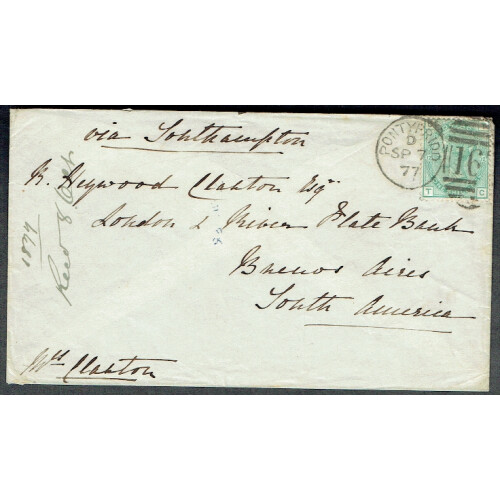 via Southampton
PONTYPRIDD
D
SP 7
77
16
T C
R. Heywood Claxton Esqr
London & River Plate Bank
Buenos Aires
South America
Wm Claxton
1877
Recd 8 Oct